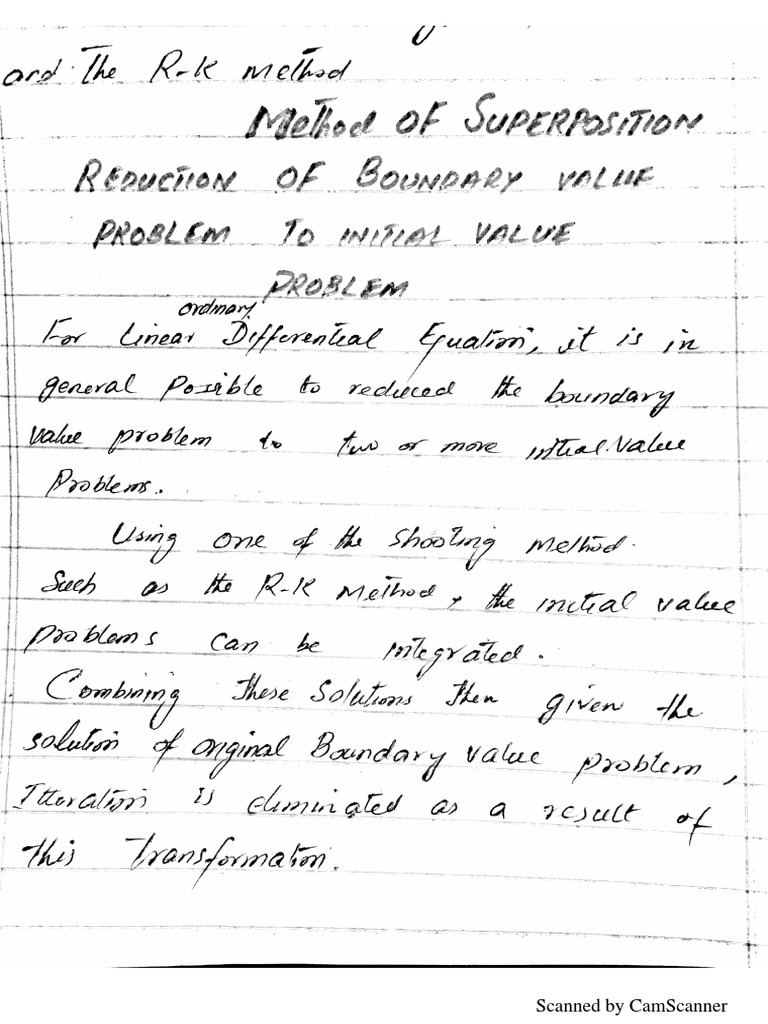 and the R-K method
Method OF SUPERPOSITION
REDUCTION OF BOUNDARY VALUE
PROBLEM TO INITIAL VALUE
PROBLEM
ordinary
For Linear Differential Equation, it is in
general Possible to reduced the boundary
value problem to two or more initial value
Problems.
Using one of the shooting method.
Such as the R-K Method, the initial value
problems can be integrated.
Combining these solutions then given the
solution of original Boundary value problem,
Itteration is eliminated as a result of
this transformation.
Scanned by CamScanner